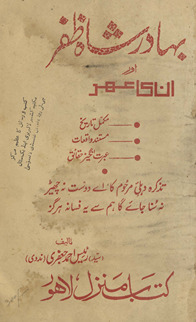 بہادر شاہ ظفر
اور
ان کا عہد
مکمل تاریخ
مستند واقعات
عبرت انگیز حقائق
تذکرہ دہلیٔ مرحوم کا اے دوست نہ چھیڑ
نہ سنا جائے گا ہم سے یہ فسانہ ہرگز
تالیف
(سید) رئیس احمد جعفری (ندوی)
کتاب منزل، لاہور